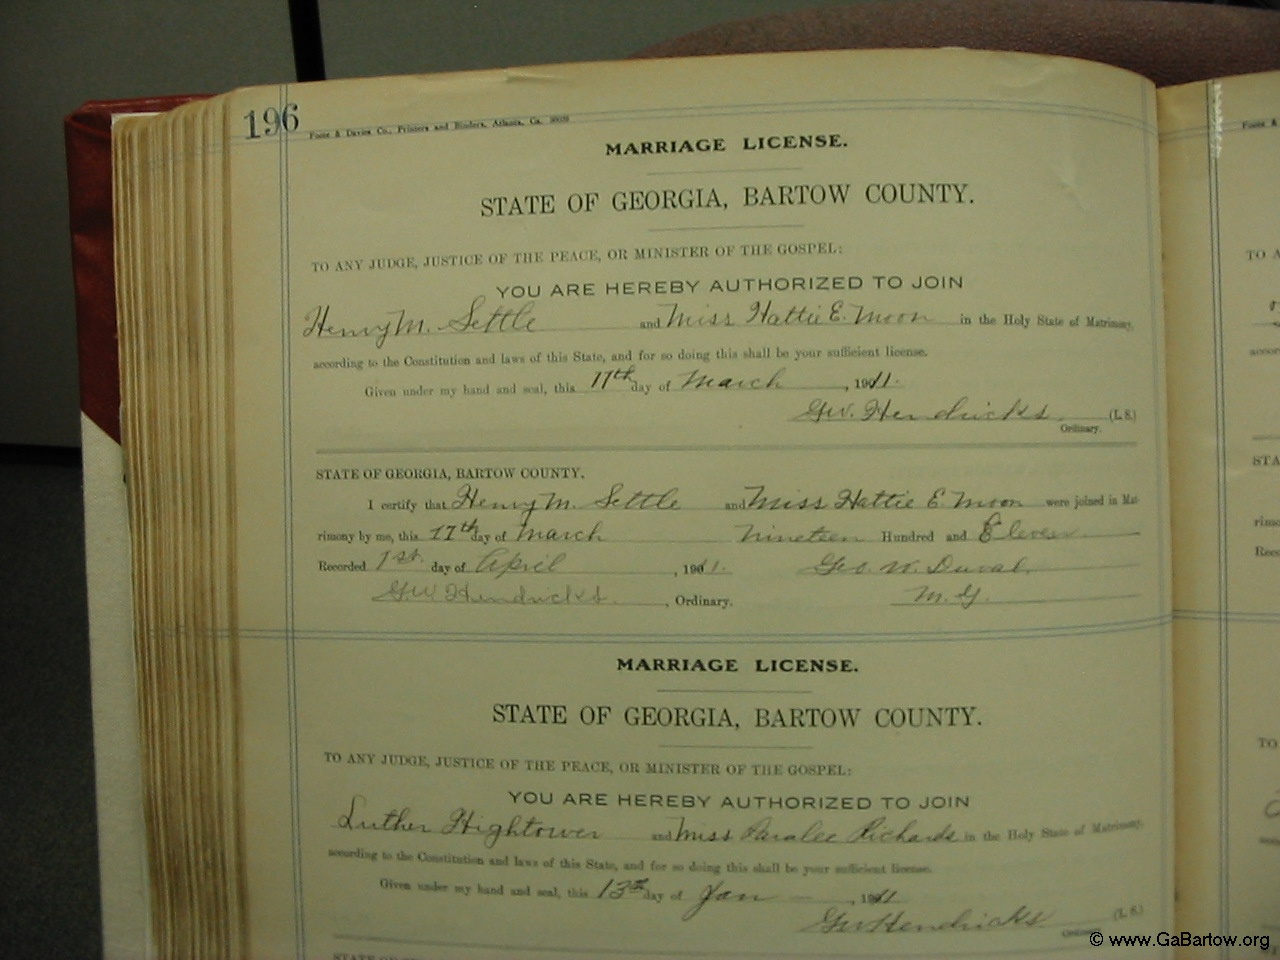 196 Foote & Davies Co., Printers and Binders, Atlanta, Ga.
MARRIAGE LICENSE.
STATE OF GEORGIA, BARTOW COUNTY.
TO ANY JUDGE, JUSTICE OF THE PEACE, OR MINISTER OF THE GOSPEL:
YOU ARE HEREBY AUTHORIZED TO JOIN
Henry M. Settle and Miss Hattie E. Moon in the Holy State of Matrimony,
according to the Constitution and laws of this State, and for so doing this shall be your sufficient license.
Given under my hand and seal, this 17th day of March, 1911.
G.W. Hendricks (L. S.)
Ordinary.
STATE OF GEORGIA, BARTOW COUNTY.
I certify that Henry M. Settle and Miss Hattie E. Moon were joined in Mat-
rimony by me, this 17th day of March Nineteen Hundred and Eleven
Recorded 1st day of April, 1911. Geo. W. Duval.
G.W. Hendricks, Ordinary. M.G.
MARRIAGE LICENSE.
STATE OF GEORGIA, BARTOW COUNTY.
TO ANY JUDGE, JUSTICE OF THE PEACE, OR MINISTER OF THE GOSPEL:
YOU ARE HEREBY AUTHORIZED TO JOIN
Luther Hightower and Miss Paralee Richards in the Holy State of Matrimony,
according to the Constitution and laws of this State, and for so doing this shall be your sufficient license.
Given under my hand and seal, this 13th day of Jan, 1911.
GW Hendricks (L. S.)
© www.GaBartow.org